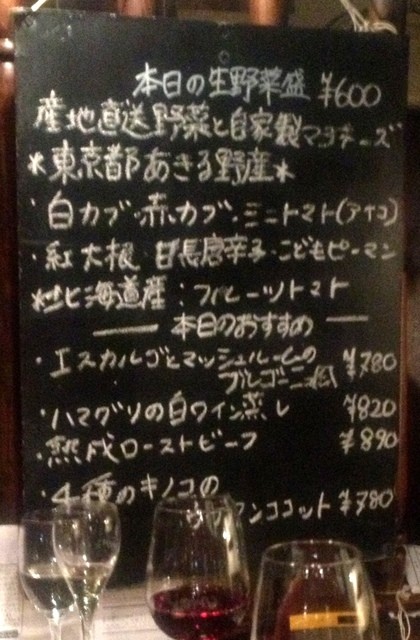 本日の生野菜盛 ¥600
産地直送野菜と自家製マヨネーズ
*東京都あきる野産*
・白カブ・赤カブ・ミニトマト(アイコ)
・紅大根 甘長唐辛子・こどもピーマン
*北海道産:フルーツトマト
本日のおすすめ
・エスカルゴとマッシュルームの ¥780
ブルゴーニュ風
・ハマグリの白ワイン蒸し ¥820
・熟成ローストビーフ ¥890
・4種のキノコの
ココット ¥780